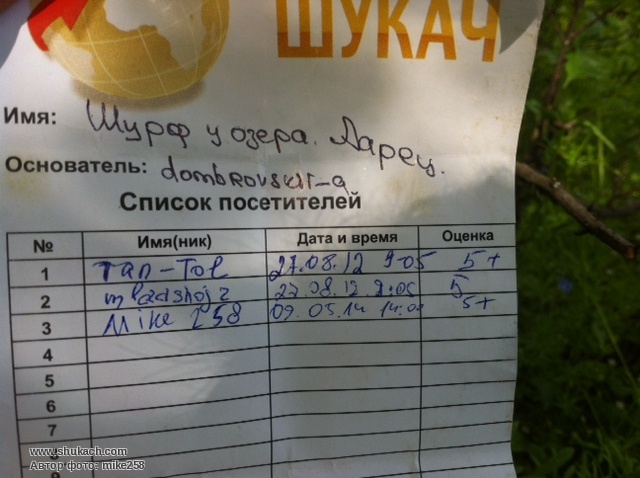 ШУКАЧ
Имя: Шурф у озера. Ларец.
Основатель: dombrovskii-a
Список посетителей
№ Имя(ник) Дата и время Оценка
1 Tan-Tol 27.08.12 9-05 5+
2 27.08.12. 9:05 5
3 Mike 258 09.05.14 14:00 5+
4
5
6
7
www.shukach.com
Автор фото: mike258